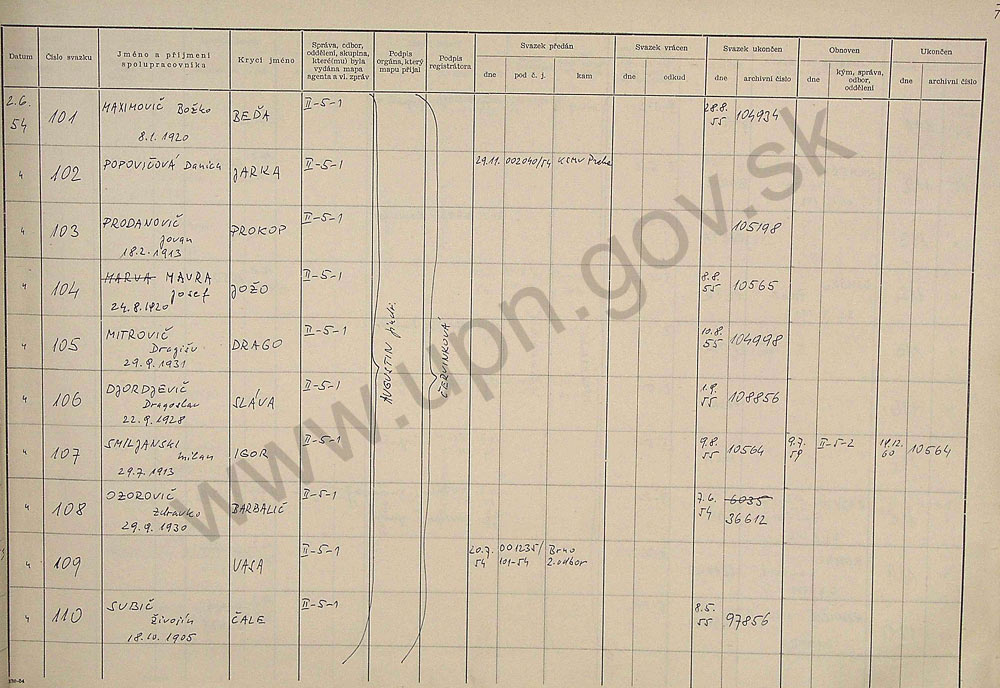 7
Datum
Číslo svazku
Jméno a příjmení
spolupracovníka
Krycí jméno
Správa, odbor,
oddělení, skupina,
které(mu) byla
vydána mapa
agenta a vl. zpráv
Podpis
orgána, který
mapu přijal
Podpis
registrátora
Svazek předán
dne
pod č. j.
kam
Svazek vrácen
dne
odkud
Svazek ukončen
dne
archivní číslo
Obnoven
dne
kým, správa,
odbor,
oddělení
Ukončen
dne
archivní číslo
2.6.
54
101
MAXIMOVIČ Božko
8.1.1920
BEĎA
II-5-1
28.8.
55
104934
102
POPOVIČOVÁ Danica
JARKA
II-5-1
29.11. 002040/54 KSMV Praha
103
PRODANOVIČ
Jovan
18.2.1913
PROKOP
II-5-1
105198
104
MARVA MAVRA
Josef
24.8.1920
JOŽO
II-5-1
8.8.
55
10565
105
MITROVIČ
Dragišu
29.9.1931
DRAGO
II-5-1
10.8.
55
104998
106
DJORDJEVIČ
Dragoslav
22.9.1928
SLÁVA
II-5-1
1.9.
55
108856
107
SMILJANSKI
Milan
29.7.1913
IGOR
II-5-1
9.8.
55
10564
9.7.
59
II-5-2
19.12.
60
10564
108
OZOROVIČ
Zdravko
29.9.1930
BARBALIČ
II-5-1
7.6.
54
6035
36612
109
VASA
II-5-1
20.7.
54
001235/
101-54
Brno
2.odbor
110
SUBIČ
Živojin
18.10.1905
ČALE
II-5-1
8.5.
55
97856
AUGUSTIN
ČERVINKOVÁ
www.upn.gov.sk